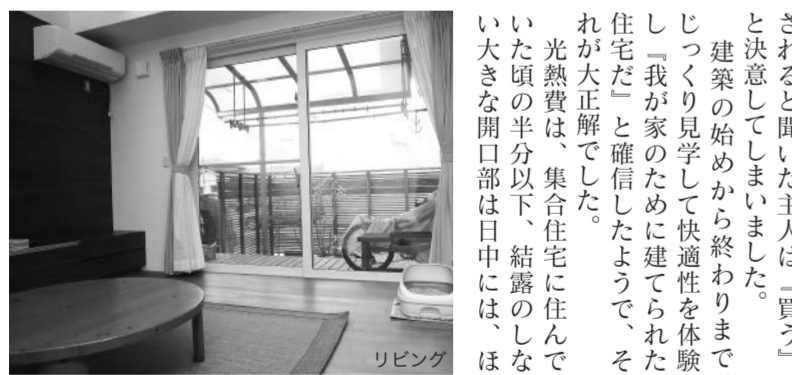 されると聞いた主人は『買う』
と決意してしまいました。
建築の始めから終わりまで
じっくり見学して快適性を体験
し『我が家のために建てられた
住宅だ』と確信したようで、そ
れが大正解でした。
光熱費は、集合住宅に住んで
いた頃の半分以下、結露のしな
い大きな開口部は日中には、ほ
リビング